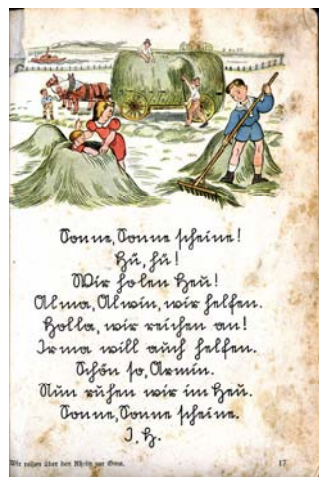 Sonne, Sonne scheine!
Hü, hü!
Wir holen Heu!
Alma, Alwin, wir helfen.
Holla, wir reichen an!
Irma will auch helfen.
Schön so, Armin.
Nun ruhen wir im Heu.
Sonne, Sonne scheine.
J, H.
Wir reisen über den Rhein zur Ems.
17